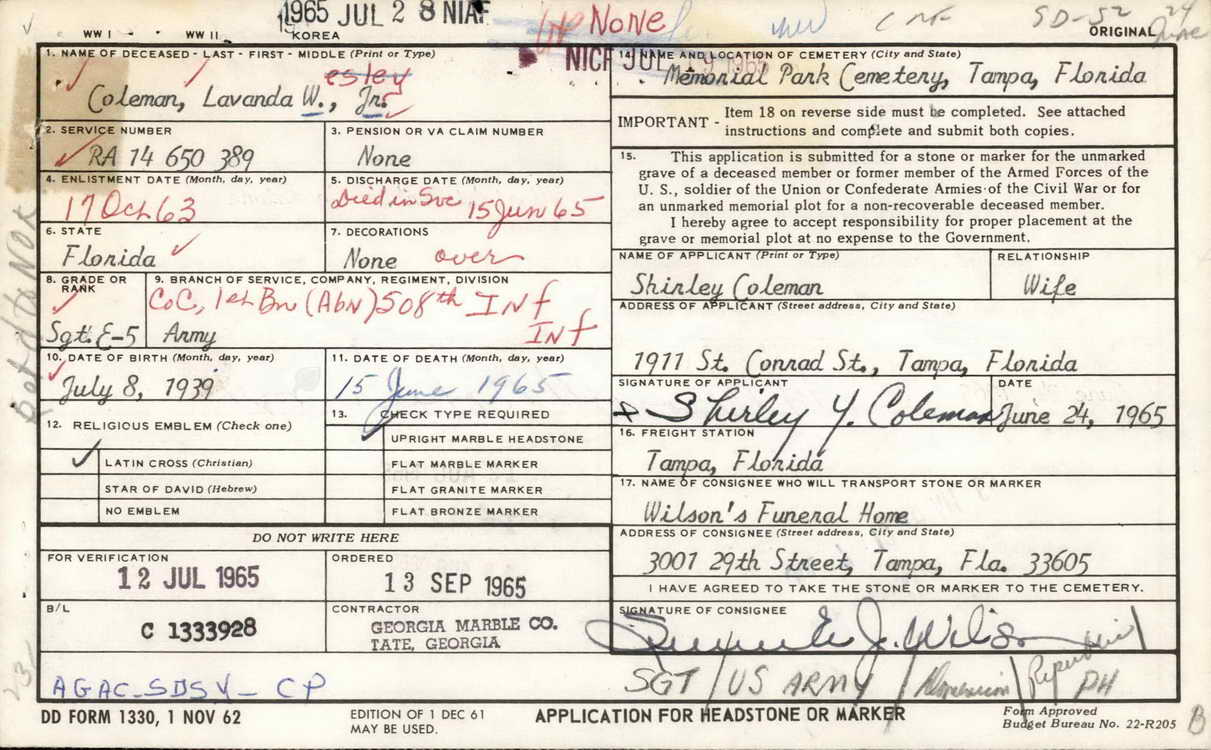 1965 JUL 28 NIAF
None
SD-52
24
June
ORIGINAL
WW I WW II KOREA
1. NAME OF DECEASED - LAST - FIRST - MIDDLE (Print or Type)
esley
Coleman, Lavanda W., Jr.
2. SERVICE NUMBER
RA 14 650 389
3. PENSION OR VA CLAIM NUMBER
None
4. ENLISTMENT DATE (Month, day, year)
17 Oct 63
5. DISCHARGE DATE (Month, day, year)
Died in Svc 15 Jun 65
6. STATE
Florida
7. DECORATIONS
None over
8. GRADE OR RANK
Sgt. E-5
9. BRANCH OF SERVICE, COMPANY, REGIMENT, DIVISION
Co C, 1st Bn (Abn) 508th Inf
Inf
Army
10. DATE OF BIRTH (Month, day, year)
July 8, 1939
11. DATE OF DEATH (Month, day, year)
15 June 1965
12. RELIGIOUS EMBLEM (Check one)
LATIN CROSS (Christian)
STAR OF DAVID (Hebrew)
NO EMBLEM
13. CHECK TYPE REQUIRED
UPRIGHT MARBLE HEADSTONE
FLAT MARBLE MARKER
FLAT GRANITE MARKER
FLAT BRONZE MARKER
DO NOT WRITE HERE
FOR VERIFICATION
12 JUL 1965
ORDERED
13 SEP 1965
B/L
C 1333928
CONTRACTOR
GEORGIA MARBLE CO.
TATE, GEORGIA
AGAC-SDSV-CP
NICF JUL 9 1965
14. NAME AND LOCATION OF CEMETERY (City and State)
Memorial Park Cemetery, Tampa, Florida
IMPORTANT - Item 18 on reverse side must be completed. See attached
instructions and complete and submit both copies.
15. This application is submitted for a stone or marker for the unmarked
grave of a deceased member or former member of the Armed Forces of the
U. S., soldier of the Union or Confederate Armies of the Civil War or for
an unmarked memorial plot for a non-recoverable deceased member.
I hereby agree to accept responsibility for proper placement at the
grave or memorial plot at no expense to the Government.
NAME OF APPLICANT (Print or Type)
Shirley Coleman
RELATIONSHIP
Wife
ADDRESS OF APPLICANT (Street address, City and State)
1911 St. Conrad St., Tampa, Florida
SIGNATURE OF APPLICANT
x Shirley Y. Coleman
DATE
June 24, 1965
16. FREIGHT STATION
Tampa, Florida
17. NAME OF CONSIGNEE WHO WILL TRANSPORT STONE OR MARKER
Wilson's Funeral Home
ADDRESS OF CONSIGNEE (Street address, City and State)
3001 29th Street, Tampa, Fla. 33605
I HAVE AGREED TO TAKE THE STONE OR MARKER TO THE CEMETERY.
SIGNATURE OF CONSIGNEE
J. Wilson
SGT / US ARMY / PH
DD FORM 1330, 1 NOV 62
EDITION OF 1 DEC 61
MAY BE USED.
APPLICATION FOR HEADSTONE OR MARKER
Form Approved
Budget Bureau No. 22-R205
B